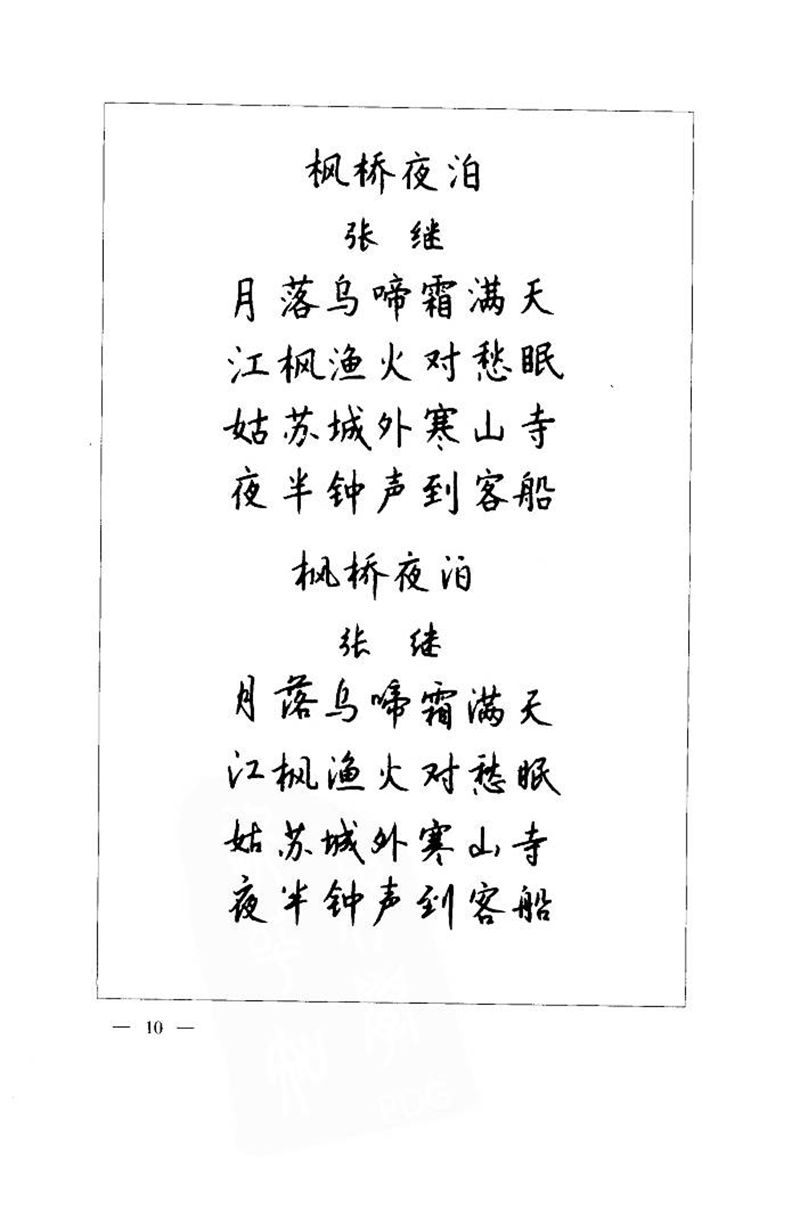 枫桥夜泊
张 继
月落乌啼霜满天
江枫渔火对愁眠
姑苏城外寒山寺
夜半钟声到客船
枫桥夜泊
张 继
月落乌啼霜满天
江枫渔火对愁眠
姑苏城外寒山寺
夜半钟声到客船
— 10 —
PDG